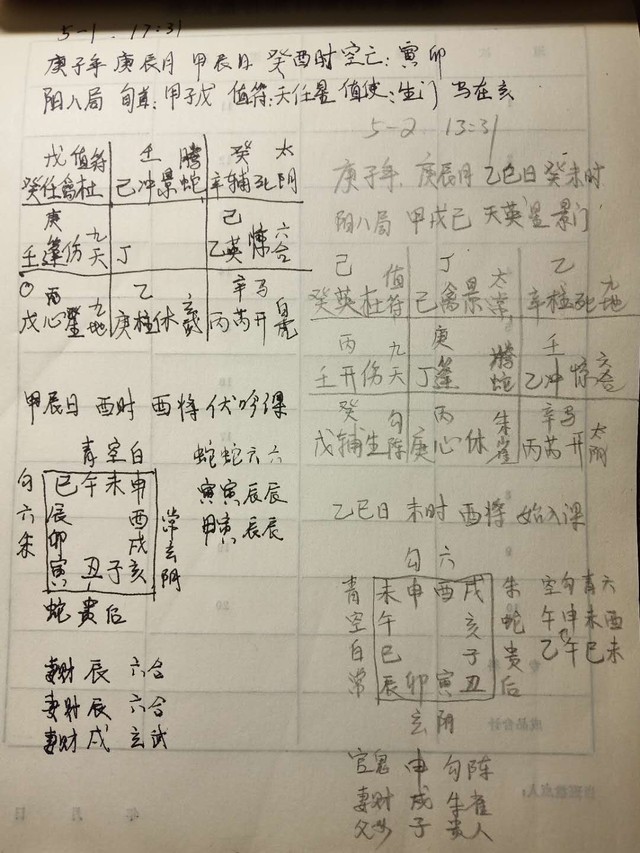 5-1. 17:31
庚子年 庚辰月 甲辰日 癸酉时 空亡: 寅卯
阳八局 旬首: 甲子戊 值符: 天任星 值使: 生门 马在亥
戊 值符 壬 腾 癸 太
癸任禽杜 己冲景蛇 辛辅死阴
庚 九 己 六
壬蓬伤天 丁 乙英惊合
○ 丙 九 乙 玄 辛马 白
戊心生地 庚柱休武 丙芮开虎
甲辰日 酉时 酉将 伏吟课
青空白 蛇蛇六六
勾 巳午未申 寅寅辰辰
六 辰 酉 常 甲寅辰辰
朱 卯 戌 玄
寅丑子亥 阴
蛇贵后
妻财 辰 六合
妻财 辰 六合
妻财 戌 玄武
5-2 13:31
庚子年. 庚辰月 乙巳日 癸未时
阳八局 甲戌己 天英星 景门
己 值 丁 太 乙 九
癸英杜符 己禽景 辛柱死地
丙 九 庚 腾 壬 六
壬开伤天 丁蓬 蛇 乙冲惊合
癸 勾 丙 朱 辛马 太
戊辅生陈 庚心休雀 丙芮开阴
乙巳日 未时 酉将 始入课
勾 六
青 未申酉戌 朱 空勾青六
空 午 亥 蛇 午申未酉
白 巳 子 贵 乙午巳未
常 辰卯寅丑 后
玄阴
官鬼 申 勾陈
妻财 戌 朱雀
父母 子 贵人
年 月 日